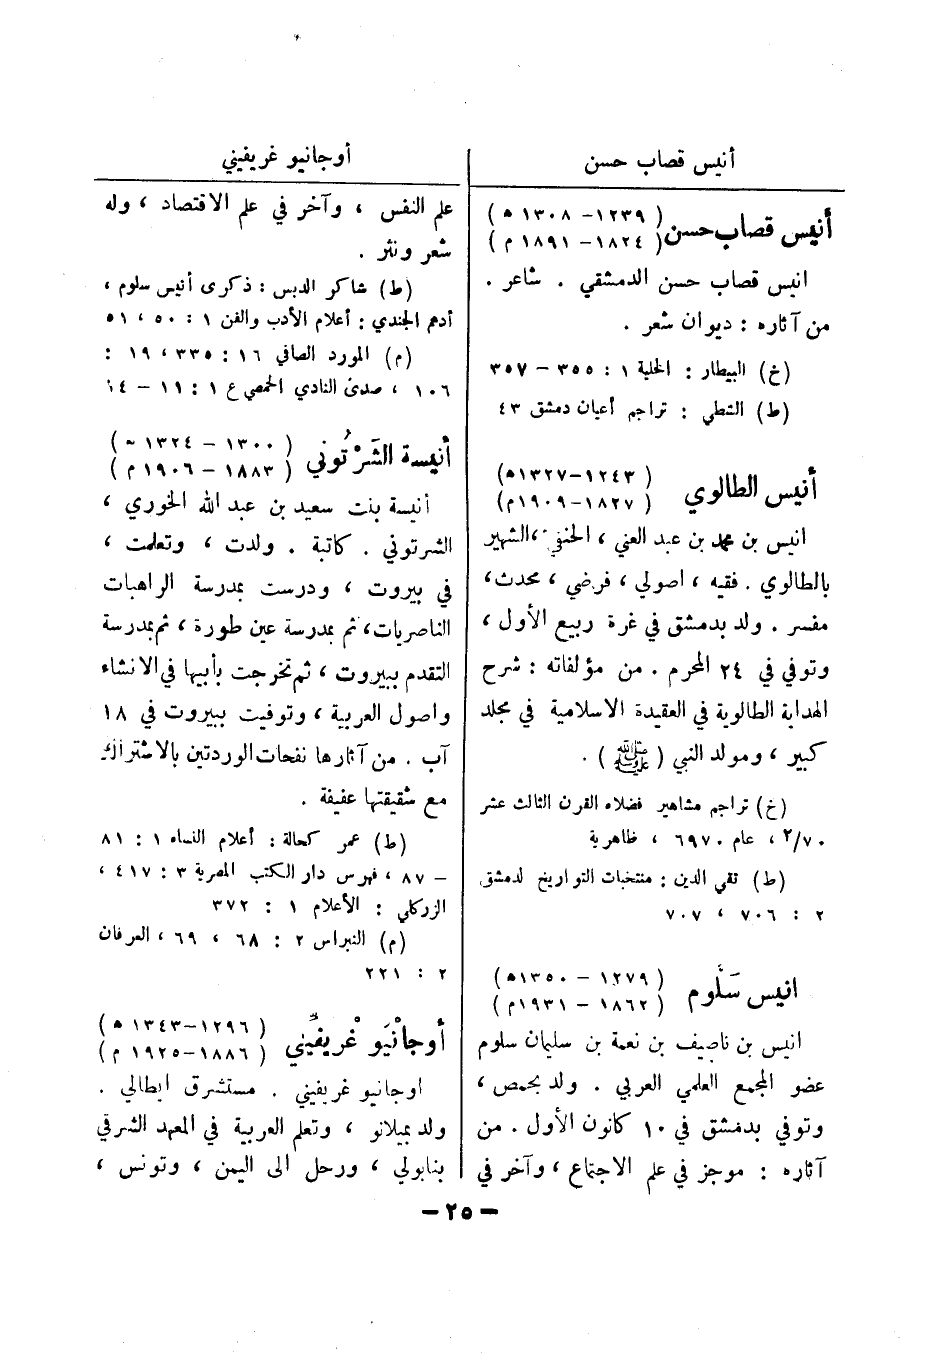 أنيس قصاب حسن
أنيس قصاب حسن ( ١٢٣٩ - ١٣٠٨ ه )
( ١٨٢٤ - ١٨٩١ م )
انيس قصاب حسن الدمشقي . شاعر .
من آثاره : ديوان شعر .
(خ) البيطار : الحلية ١ : ٣٥٥ - ٣٥٧
(ط) الشطي : تراجم أعيان دمشق ٤٣
أنيس الطالوي ( ١٢٤٣-١٣٢٧ه )
( ١٨٢٧-١٩٠٩م )
انيس بن محمد بن عبد الغني ، الحنفي ، الشهير
بالطالوي . فقيه ، اصولي ، فرضي ، محدث ،
مفسر . ولد بدمشق في غرة ربيع الأول ،
وتوفي في ٢٤ المحرم . من مؤلفاته : شرح
الهداية الطالوية في العقيدة الاسلامية في مجلد
كبير ، ومولد النبي ( ﷺ ) .
(خ) تراجم مشاهير فضلاء القرن الثالث عشر
٢/٧٠ ، عام ٦٩٧٠ ، ظاهرية
(ط) تقي الدين : منتخبات التواريخ لدمشق
٢ : ٧٠٦ ، ٧٠٧
انيس سَلّوم ( ١٢٧٩ - ١٣٥٠ه )
( ١٨٦٢ - ١٩٣١م )
انيس بن ناصيف بن نعمة بن سليمان سلوم
عضو المجمع العلمي العربي . ولد بحمص ،
وتوفي بدمشق في ١٠ كانون الأول . من
آثاره : موجز في علم الاجتماع ، وآخر في
أوجانيو غريفيني
علم النفس ، وآخر في علم الاقتصاد ، وله
شعر ونثر .
(ط) شاكر الدبس : ذكرى أنيس سلوم ،
أدهم الجندي : أعلام الأدب والفن ١ : ٥٠ ، ٥١
(م) المورد الصافي ١٦ : ٣٣٥ ، ١٩ :
١٠٦ ، صدى النادي الحمصي ع ١ : ١١ - ١٤
أنيسة الشَرْتُوني ( ١٣٠٠ - ١٣٢٤ ه )
( ١٨٨٣ - ١٩٠٦ م )
أنيسة بنت سعيد بن عبد الله الخوري ،
الشرتوني . كاتبة . ولدت ، وتعلمت ،
في بيروت ، ودرست بمدرسة الراهبات
الناصريات ، ثم بمدرسة عين طورة ، ثم بمدرسة
التقدم ببيروت ، ثم تخرجت بأبيها في الانشاء
واصول العربية ، وتوفيت ببيروت في ١٨
آب . من آثارها نفحات الوردتين بالاشتراك
مع شقيقتها عفيفة .
(ط) عمر كحالة : أعلام النساء ١ : ٨١
- ٨٧ ، فهرس دار الكتب المصرية ٣ : ٤١٧ ،
الزركلي : الأعلام ١ : ٣٧٢
(م) النبراس ٢ : ٦٨ ، ٦٩ ، العرفان
٢ : ٢٢١
أوجانْيَو غْريفيني ( ١٢٩٦-١٣٤٣ ه )
( ١٨٨٦-١٩٢٥ م )
اوجانيو غريفيني . مستشرق ايطالي .
ولد بميلانو ، وتعلم العربية في المعهد الشرقي
بنابولي ، ورحل الى اليمن ، وتونس ،
- ٢٥ -